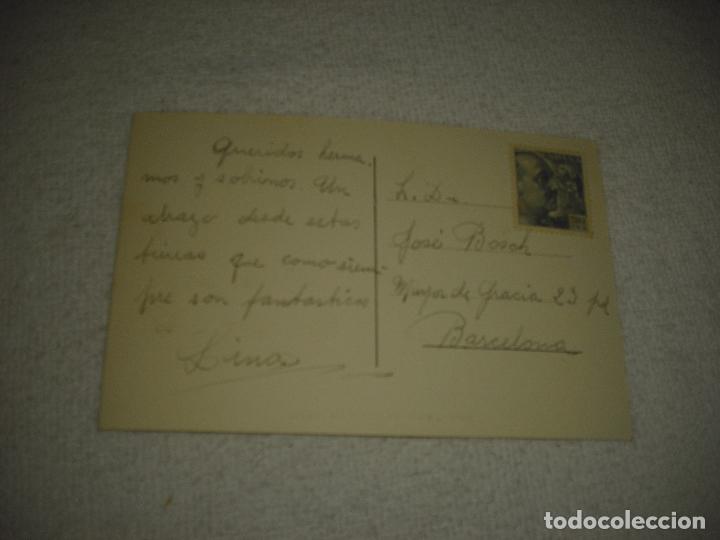 Queridos herma
nos y sobrinos. Un
abrazo desde estas
tierras que como siem
pre son fantasticas
Lina
José Bosch
Mayor de Gracia 23 pl
Barcelona
todocoleccion